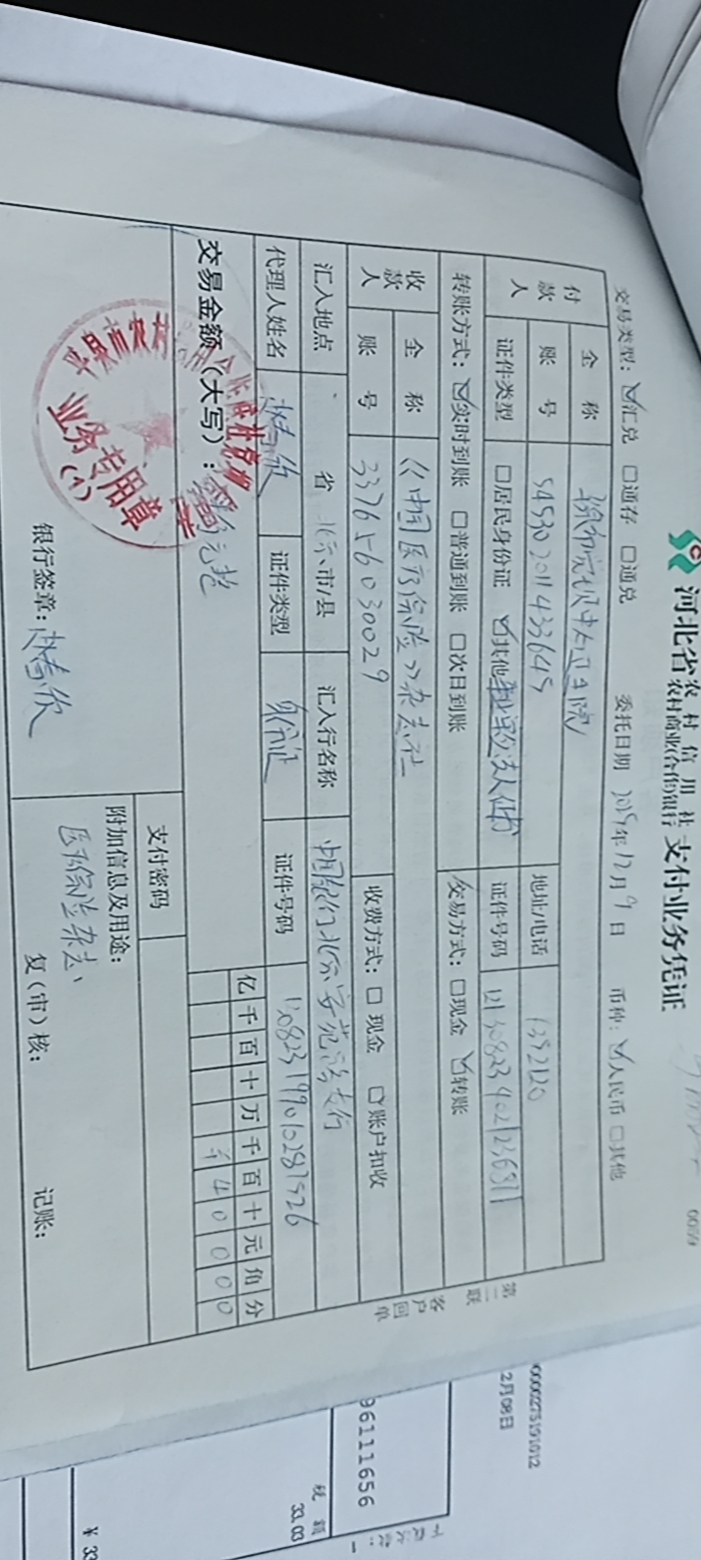 河北省农村信用社 农村商业(合作)银行 支付业务凭证
0059
交易类型：☑汇兑 □通存 □通兑 委托日期 2019年12月9日 币种：☑人民币 □其他
付款人 全称 中心卫生院
账号 54530201143364
地址/电话 1352120
证件类型 □居民身份证 ☑其他 事业单位法人证书 证件号码
转账方式：☑实时到账 □普通到账 □次日到账 交易方式：□现金 ☑转账
收款人 全称 《中国医疗保险》杂志社
账号 337656030029 收费方式：□ 现金 ☑账户扣收
汇入地点 省 北京 市/县 汇入行名称 中国银行北京安苑路支行
代理人姓名 证件类型 身份证 证件号码
交易金额（大写）： 肆佰元整
亿千百十万千百十元角分
¥40000
支付密码
附加信息及用途：
医疗保险杂志
银行签章： 复（审）核： 记账：
业务专用章
(1)
第二联 客户回单
0000275191012
2月08日
96111656
税 额
33.03
¥ 33